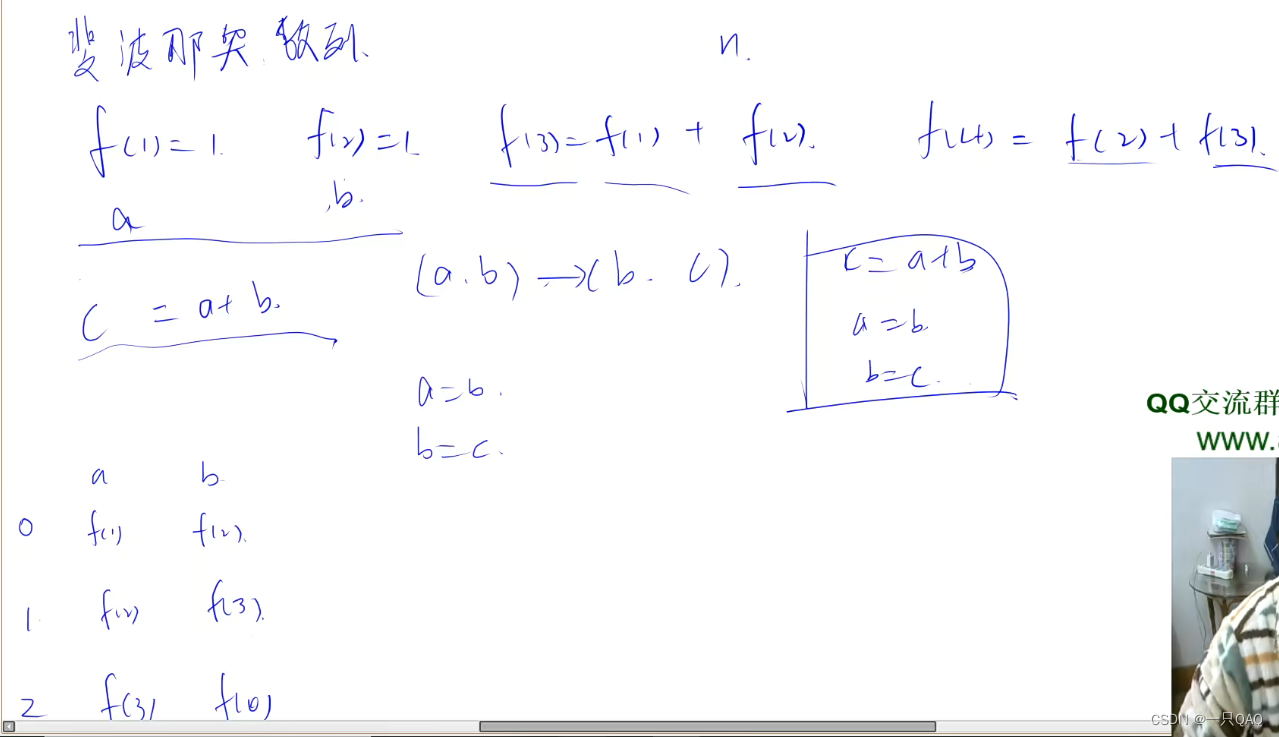 斐波那契数列.
n.
f(1)=1. f(2)=1 f(3)=f(1)+f(2). f(4)=f(2)+f(3).
a b.
c = a+b.
(a.b)→(b. c).
c=a+b
a=b
b=c.
a=b.
b=c.
QQ交流群
www.
a b
0 f(1) f(2).
1. f(2) f(3).
2 f(3)
CSDN @一只QAQ